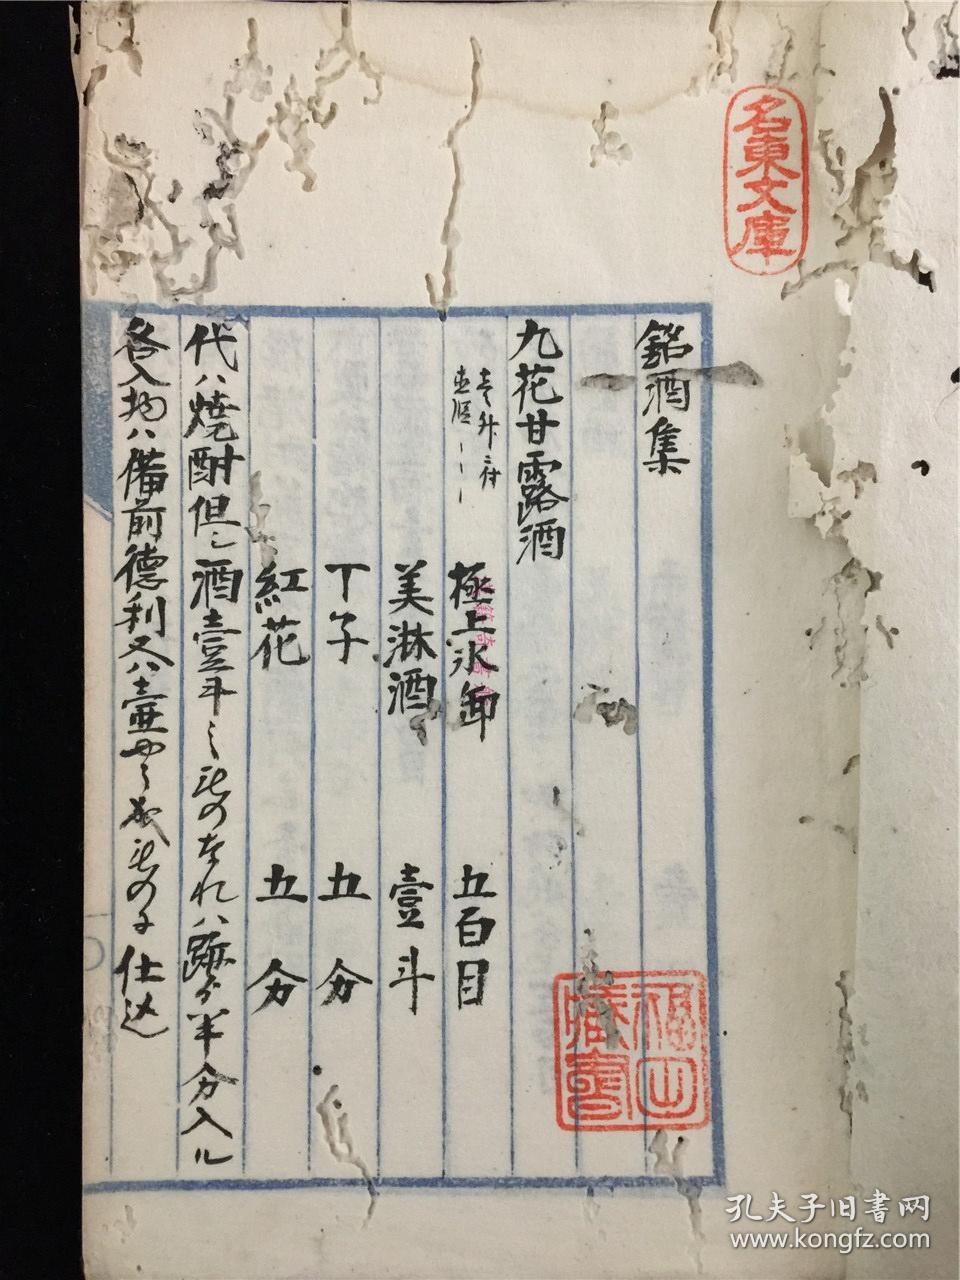 名東文庫
銘酒集
九花甘露酒
壱升ニ付
極上氷卸 五百目
美淋酒 壹斗
丁子 五分
紅花 五分
代ハ焼酎但シ酒壹斗 ものなれハ 半分入ル
各入物ハ備前德利又ハ壷やう 成ものに仕込
福山藏書
孔夫子旧书网
www.kongfz.com